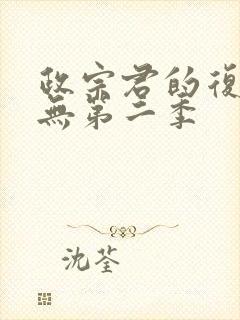 政宗君的復
無第二季
沈荃